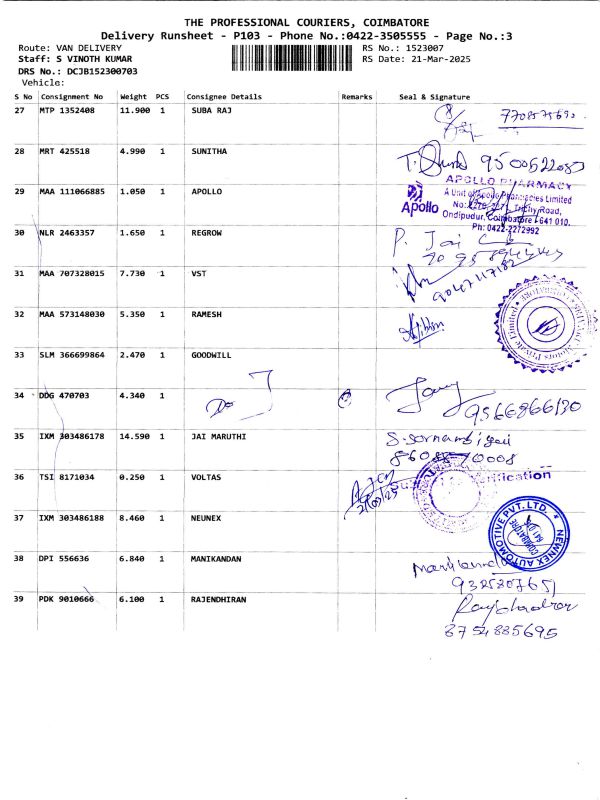 THE PROFESSIONAL COURIERS, COIMBATORE
Delivery Runsheet - P103 - Phone No.:0422-3505555 - Page No.:3
Route: VAN DELIVERY RS No.: 1523007
Staff: S VINOTH KUMAR RS Date: 21-Mar-2025
DRS No.: DCJB152300703
Vehicle:
S No Consignment No Weight PCS Consignee Details Remarks Seal & Signature
27 MTP 1352408 11.900 1 SUBA RAJ
28 MRT 425518 4.990 1 SUNITHA
APOLLO PHARMACY
29 MAA 111066885 1.050 1 APOLLO
A Unit of Apollo Pharmacies Limited
Apollo
Trichy Road,
Ondipudur, Coimbatore - 641 010.
Ph: 0422-2272992
30 NLR 2463357 1.650 1 REGROW
P. Jai
31 MAA 707328015 7.730 1 VST
9047117182
32 MAA 573148030 5.350 1 RAMESH
Motors Private Limited
33 SLM 366699864 2.470 1 GOODWILL
34 DDG 470703 4.340 1
9566866130
35 IXM 303486178 14.590 1 JAI MARUTHI
36 TSI 8171034 0.250 1 VOLTAS
37 IXM 303486188 8.460 1 NEUNEX
NEWNEX AUTOMOTIVE PVT. LTD.
COIMBATORE
38 DPI 556636 6.840 1 MANIKANDAN
39 PDK 9010666 6.100 1 RAJENDHIRAN
8754885695